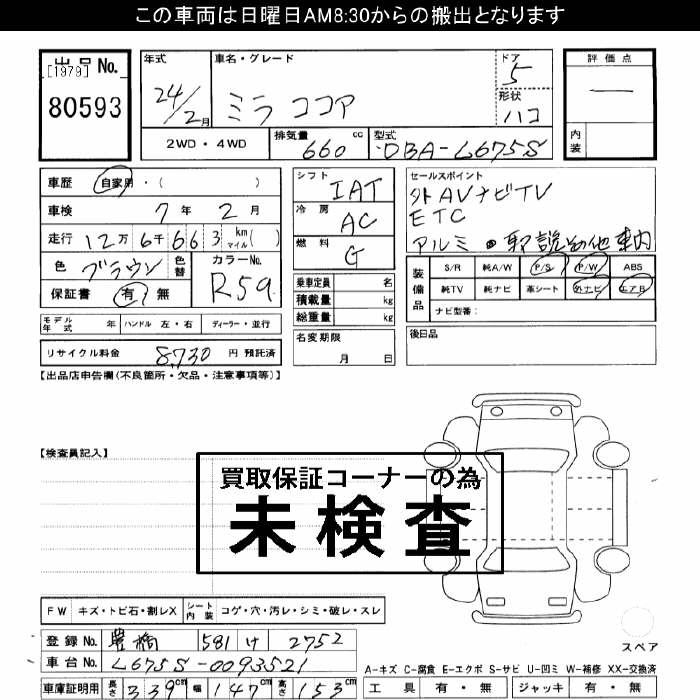 この車両は日曜日AM8:30からの搬出となります
出品No.
[1979]
80593
年式 車名・グレード ドア
24/2月 ミラ ココア 5
形状
ハコ
2WD・4WD 排気量 660 cc 型式 DBA-L675S
評価点
—
内装
車歴 自家用・( )
車検 7年 2月
走行 12万6千663 km マイル( )
色 ブラウン 色替 カラーNo. R59
保証書 有 無
モデル年式 年 ハンドル 左・右 ディーラー・並行
リサイクル料金 8,730 円 預託済
シフト IAT
冷房 AC
燃料 G
乗車定員 名
積載量 kg
総重量 kg
名変期限
月 日
セールスポイント
外AVナビTV
ETC
装備品 S/R 純A/W P/S P/W ABS
純TV 純ナビ 革シート 外ナビ エアB
ナビ型番:
後日品
【出品店申告欄(不良箇所・欠品・注意事項等)】
【検査員記入】
買取保証コーナーの為
未検査
FW キズ・トビ石・割レX シート内装 コゲ・穴・汚レ・シミ・破レ・スレ
登録No. 豊橋 581 け 2752
車台No. L675S-0093521
車庫証明用 長さ 339cm 幅 147cm 高さ 153cm
スペア
A-キズ C-腐食 E-エクボ S-サビ U-凹ミ W-補修 XX-交換済
工具 有・無 ジャッキ 有・無